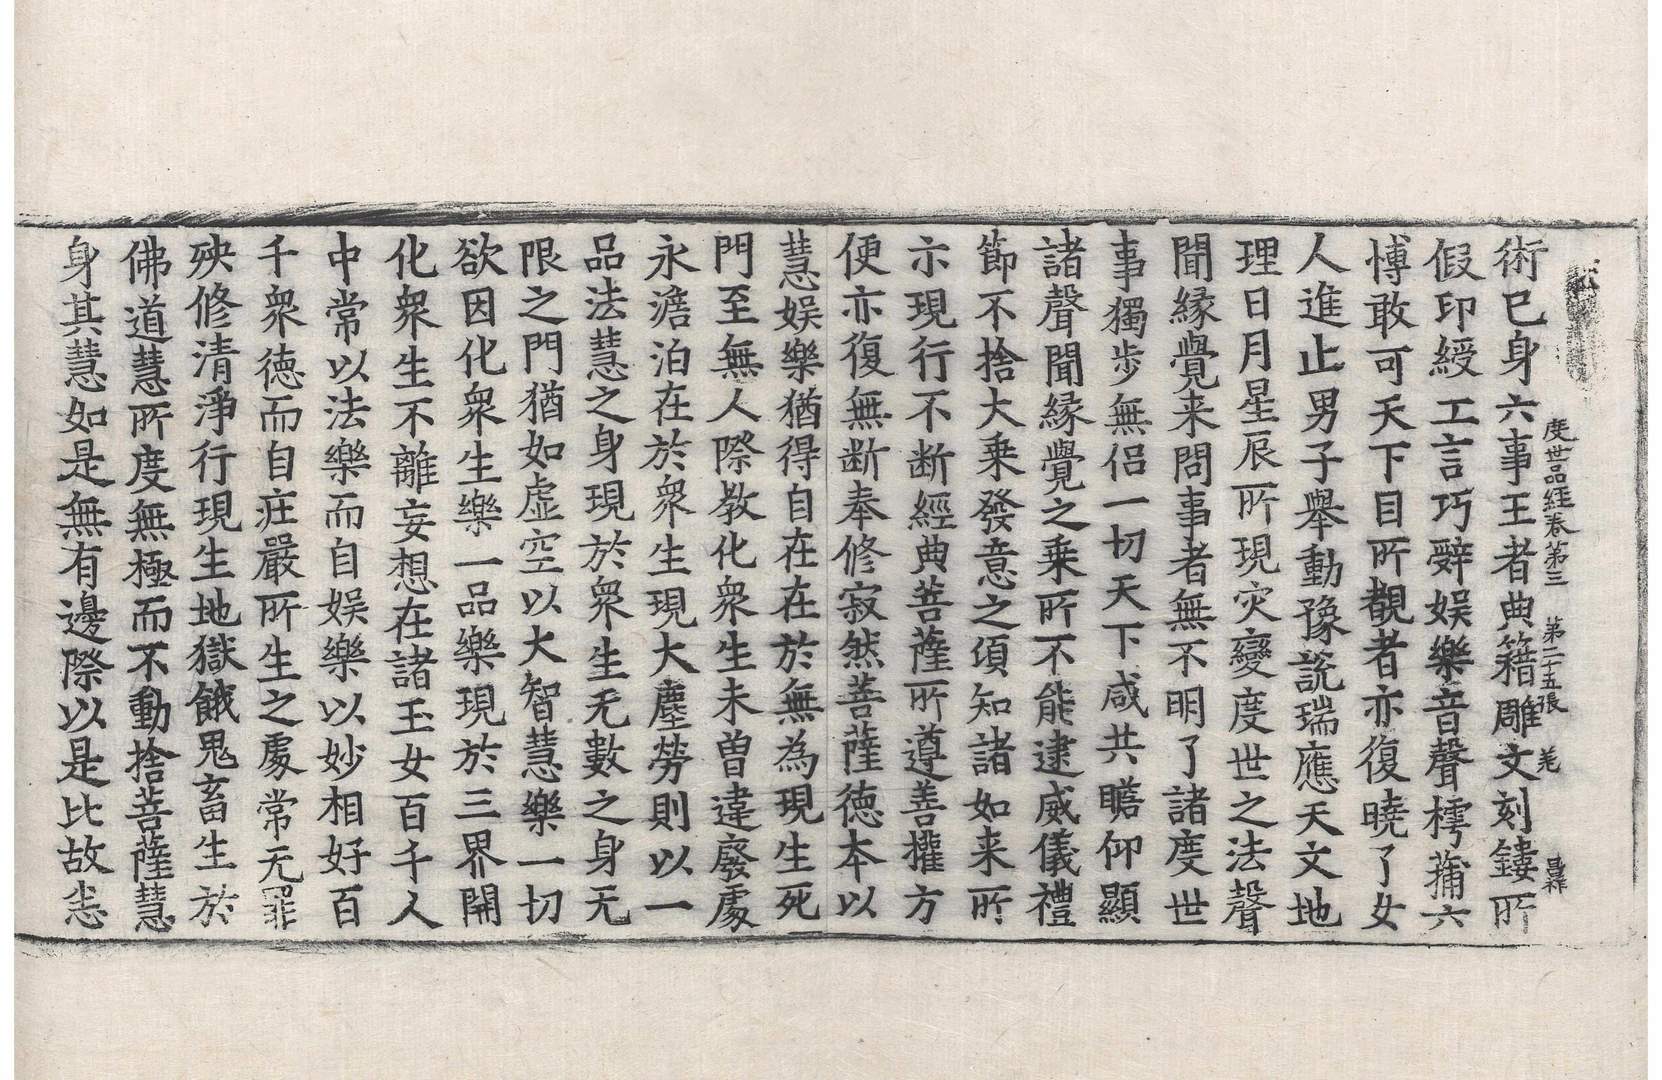 度世品経卷第三 第二十五張 羌
術已身六事王者典籍雕文刻鏤所
假印綬工言巧辭娯樂音聲樗蒱六
博敢可天下目所覩者亦復曉了女
人進止男子舉動豫説瑞應天文地
理日月星辰所現灾變度世之法聲
聞縁覺来問事者無不明了諸度世
事獨步無侶一切天下咸共瞻仰顯
諸聲聞縁覺之乗所不能逮威儀禮
節不捨大乗發意之頃知諸如来所
示現行不断經典菩薩所遵善攉方
便亦復無断奉修寂然菩薩德本以
慧娯樂猶得自在在於無為現生死
門至無人際教化衆生未曽違廢處
永澹泊在於衆生現大塵勞則以一
品法慧之身現於衆生无數之身无
限之門猶如虚空以大智慧樂一切
欲因化衆生樂一品樂現於三界開
化衆生不離妄想在諸玉女百千人
中常以法樂而自娯樂以妙相好百
千衆德而自莊嚴所生之處常无罪
殃修清淨行現生地獄餓鬼畜生於
佛道慧所度無極而不動捨菩薩慧
身其慧如是無有邊際以是比故恙